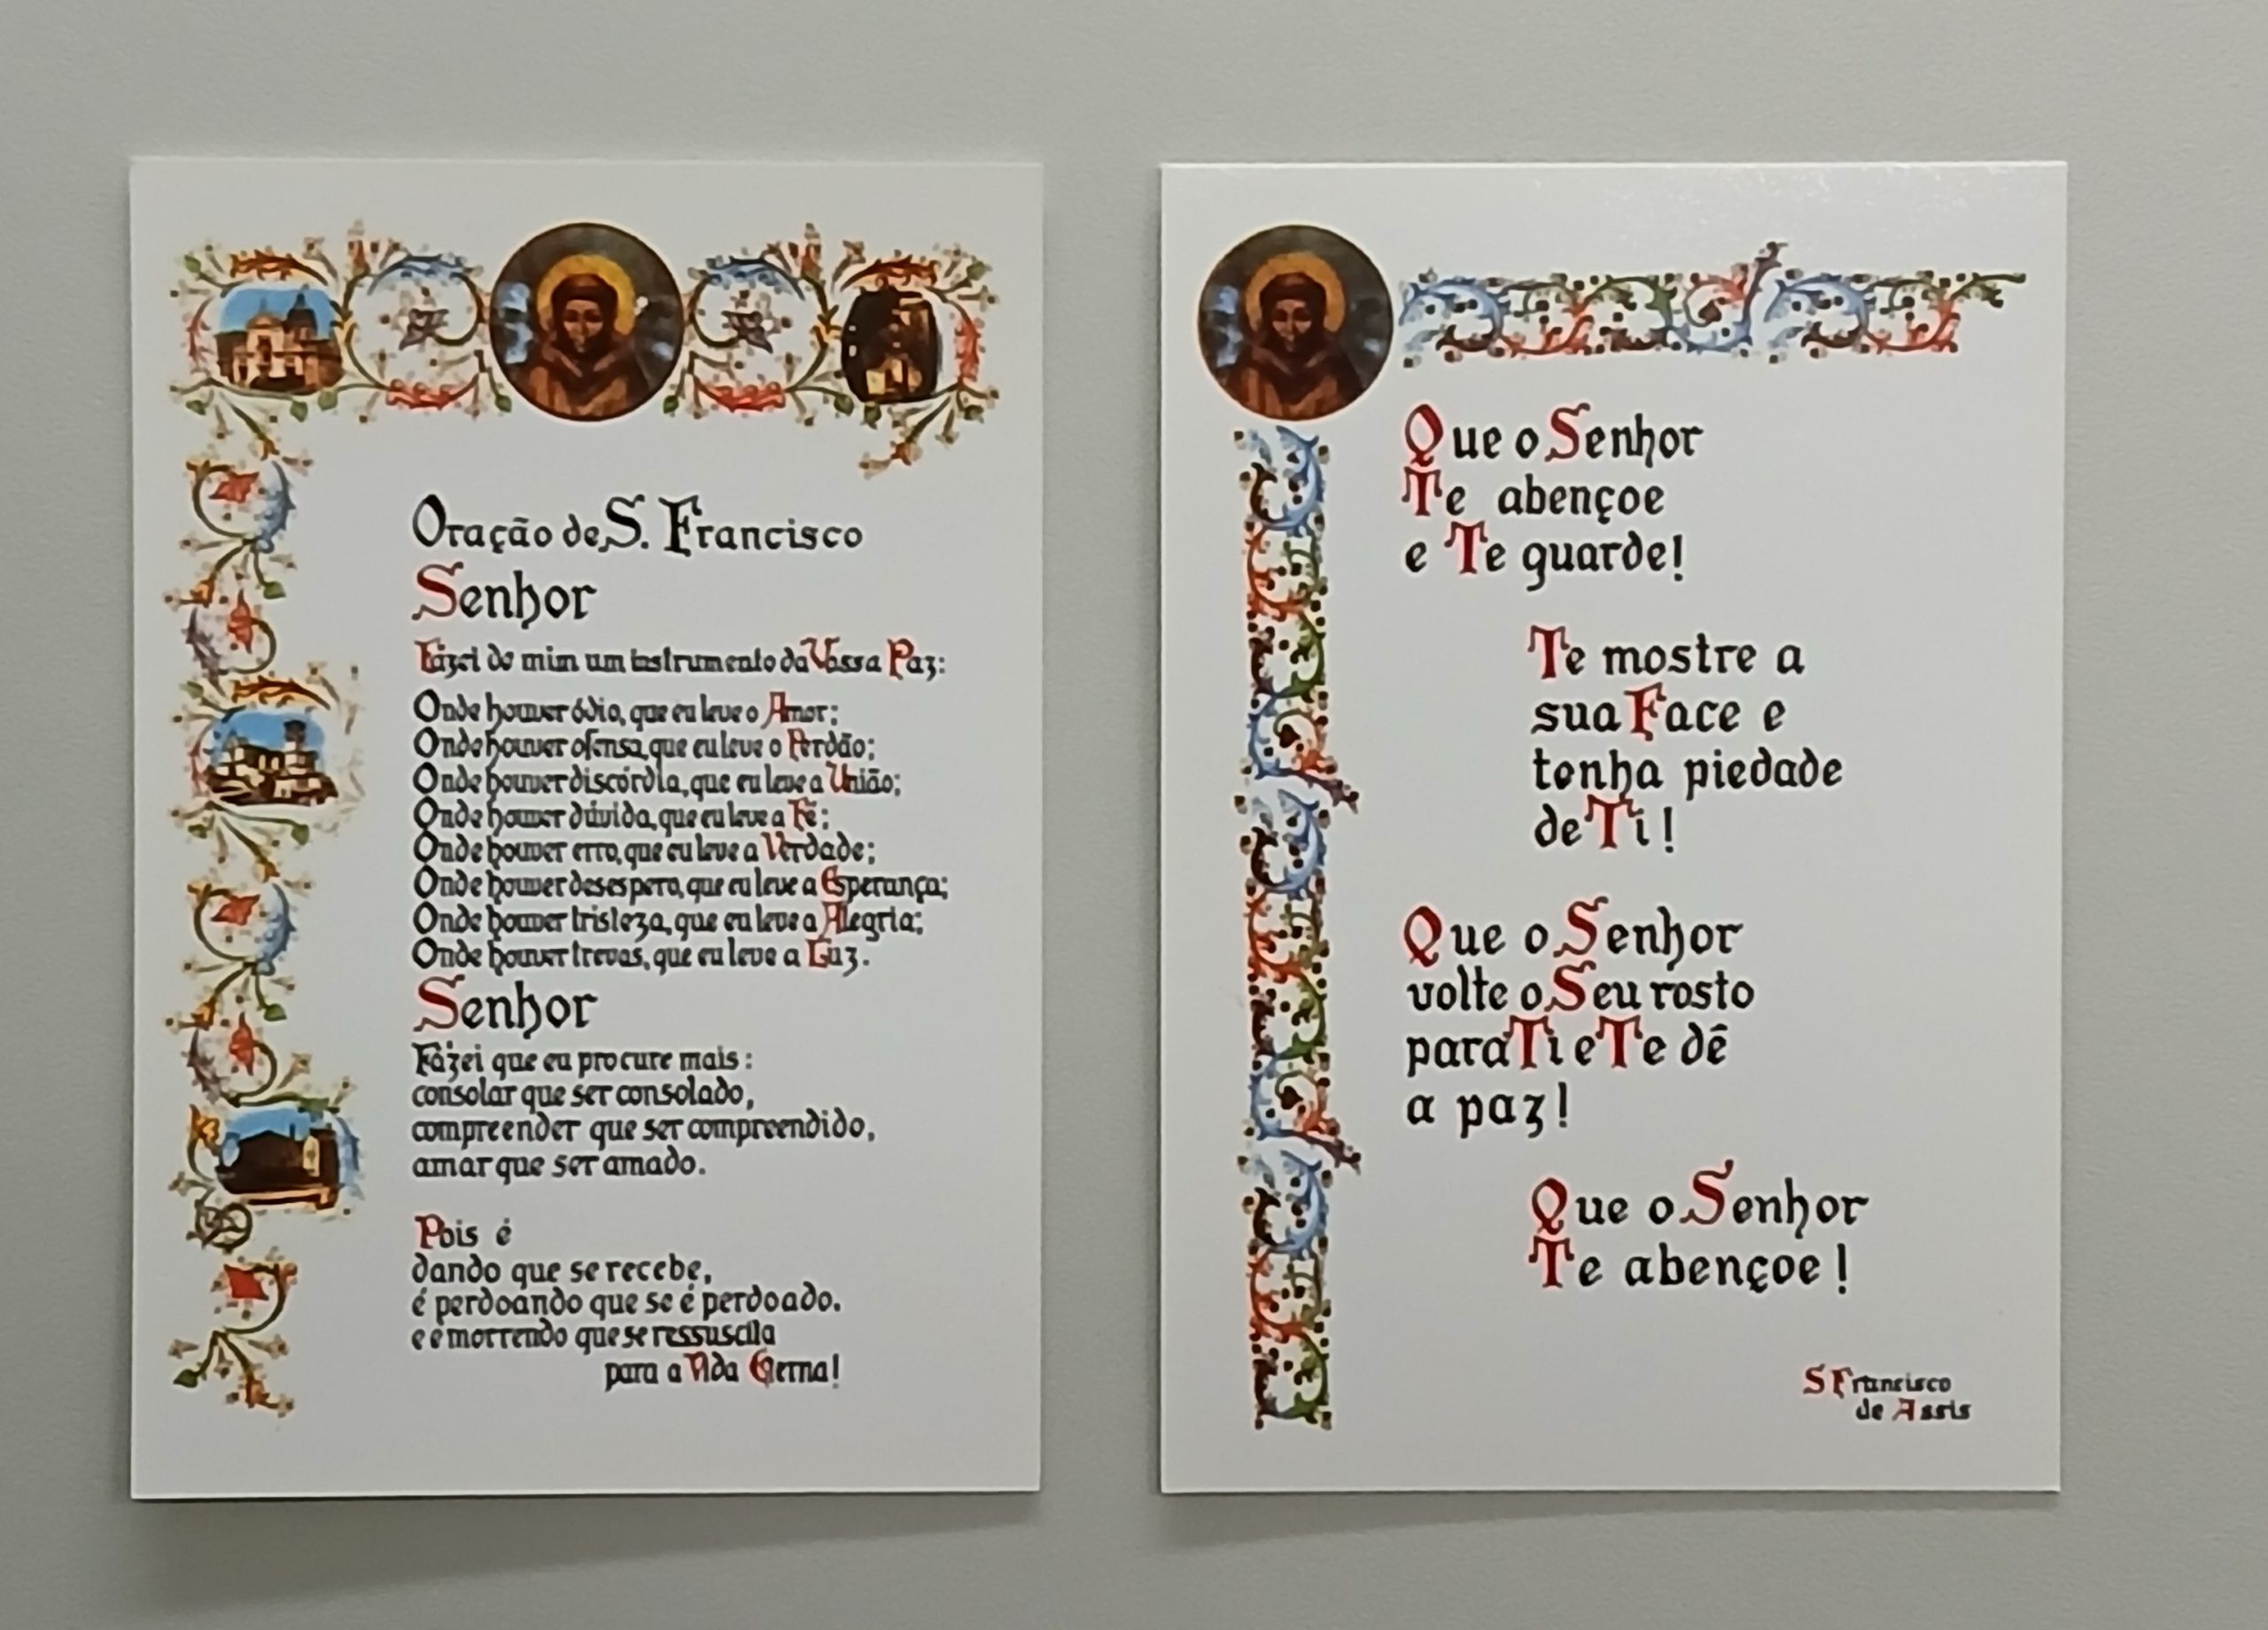 Oração de S. Francisco
Senhor
Fazei de mim um instrumento da Vossa Paz:
Onde houver ódio, que eu leve o Amor;
Onde houver ofensa, que eu leve o Perdão;
Onde houver discórdia, que eu leve a União;
Onde houver dúvida, que eu leve a Fé;
Onde houver erro, que eu leve a Verdade;
Onde houver desespero, que eu leve a Esperança;
Onde houver tristeza, que eu leve a Alegria;
Onde houver trevas, que eu leve a Luz.
Senhor
Fazei que eu procure mais:
consolar que ser consolado,
compreender que ser compreendido,
amar que ser amado.
Pois é
dando que se recebe,
é perdoando que se é perdoado,
e é morrendo que se ressuscita
para a Vida Eterna!
Que o Senhor
Te abençoe
e Te guarde!
Te mostre a
sua Face e
tenha piedade
de Ti!
Que o Senhor
volte o Seu rosto
para Ti e Te dê
a paz!
Que o Senhor
Te abençoe!
S Francisco
de Assis